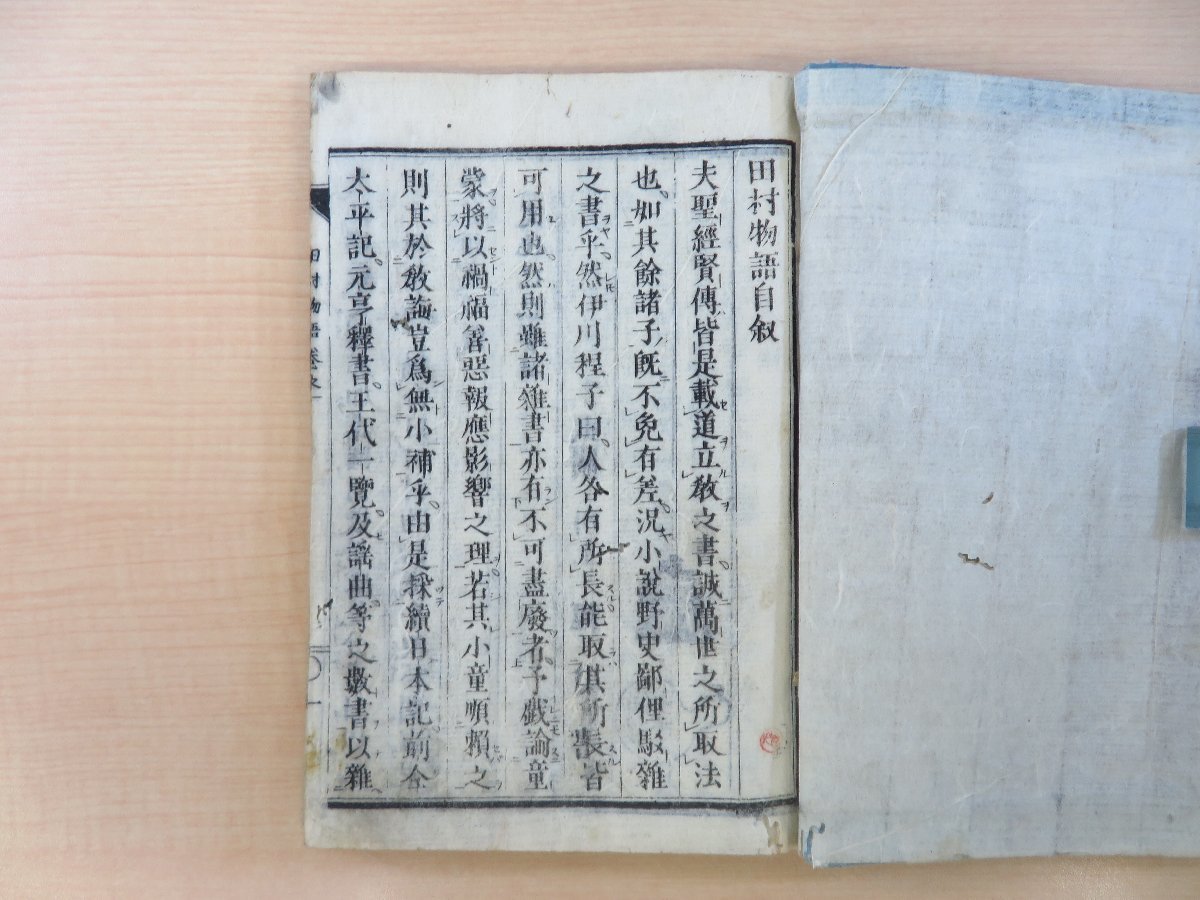 田村物語自叙
夫聖經賢傳皆是載道立教之書誠萬世之所取法
也如其餘諸子既不免有差況小說野史鄙俚駁雜
之書乎然伊川程子曰人各有所長能取其所長皆
可用也然則雖諸雜書亦有不可盡廢者予戲論童
蒙將以禍福善惡報應影響之理若其小童頑賴之
則其於教誨豈爲無小補乎由是採續日本記前全
太平記元亨釋書王代一覽及謡曲等之數書以雜
田村物語卷之一